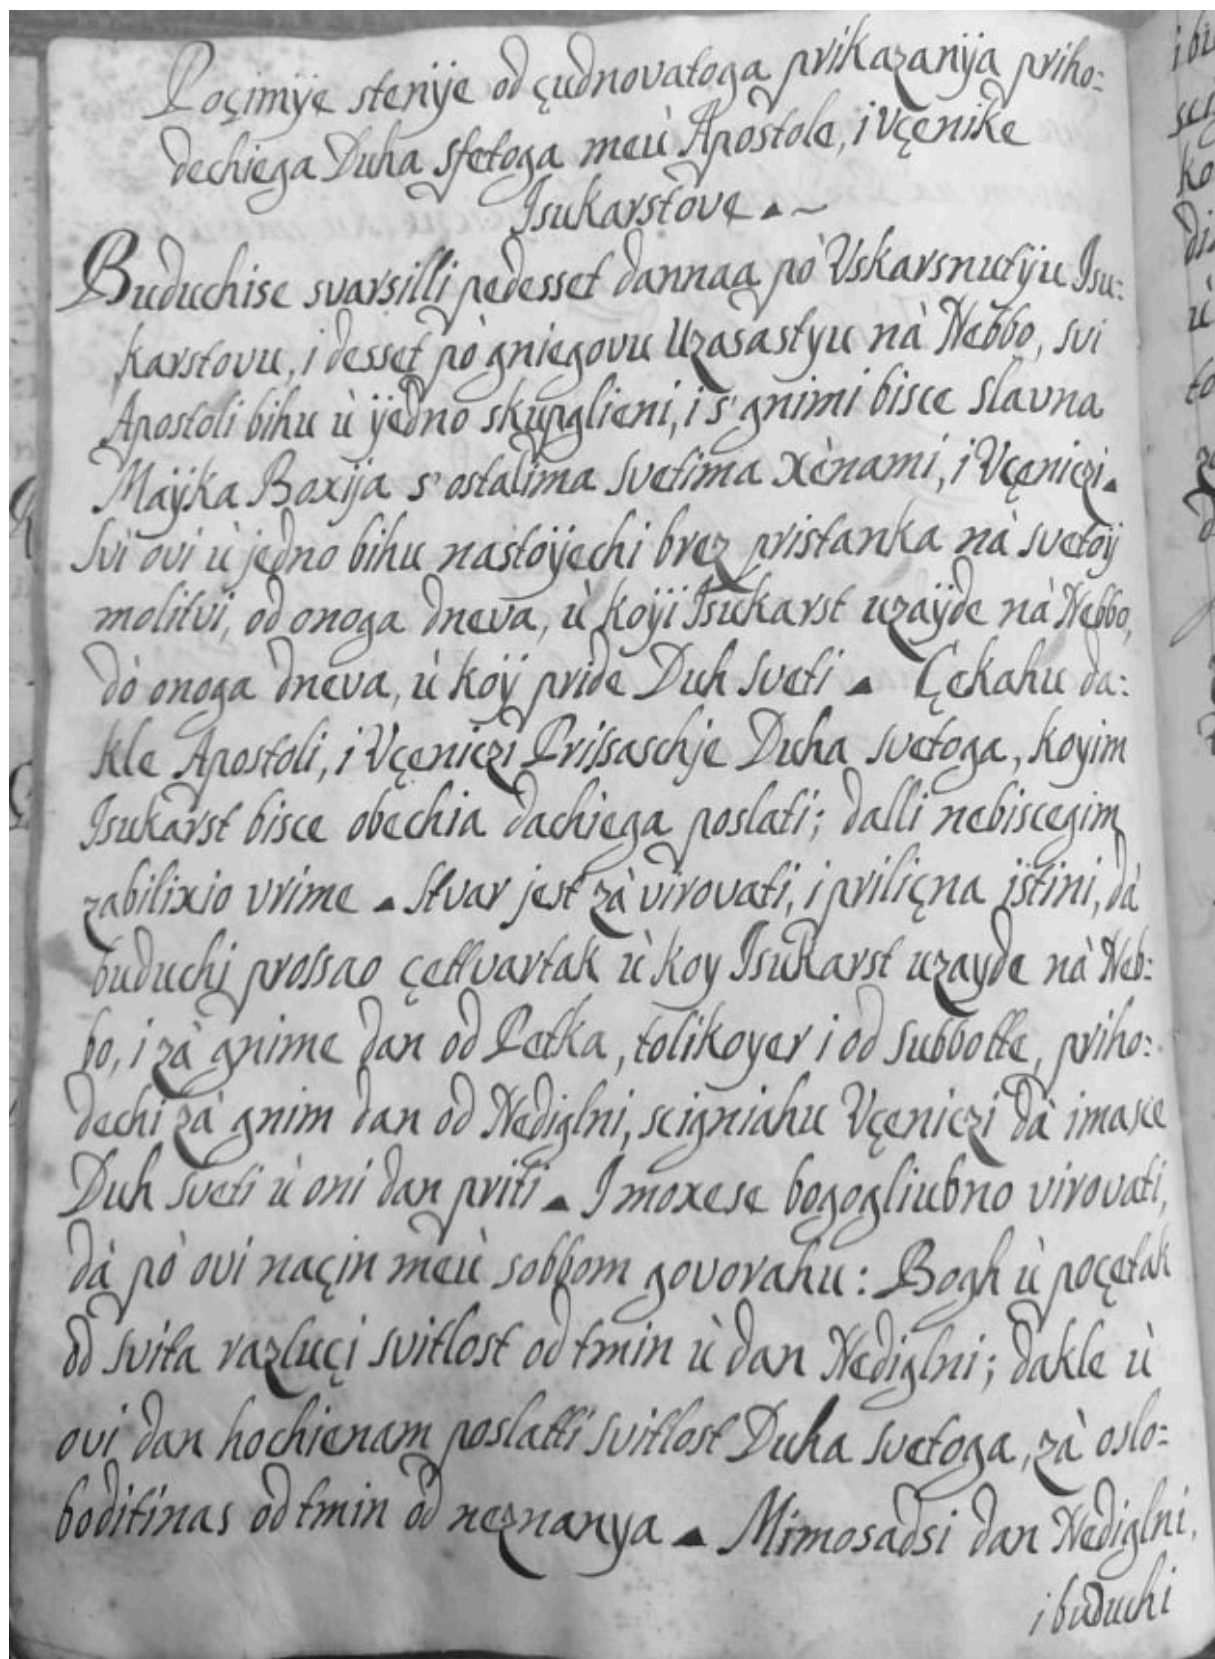 Poçimÿe stenÿe od çudnovatoga prikazanÿa priho:
dechiega Duha sfetoga meù Apostole, i Vçenike
Isukarstove ~
Buduchise svarsilli pedesset dannaa pò Vskarsnutÿu Isu:
karstovu, i desset pò gniegovu Uzasastyu nà Nebbo, svi
Apostoli bihu ù ÿedno skupglieni, i s' gnimi bisce slavna
Maÿka Boxÿa s' ostalima svetima xènami, i Vçeniczi
Svi ovi ù jedno bihu nastoÿechi brez pristanka nà svetoÿ
molitvi, od onoga dneva, ù koÿi Isukarst uzaÿde nà Nebbo,
dò onoga dneva, ù koÿ pride Duh sveti Çekahu da:
kle Apostoli, i Vçeniczi Prissaschje Duha svetoga, koyim
Isukarst bisce obechia dachiega poslati; dalli nebiscegim
zabilixio vrime Stvar jest zà virovati, i priliçna istini, dà
buduchi prossao çettvartak ù koy Isukarst uzayde nà Neb:
bo, i zà gnime dan od Petka, tolikoyer i od subbotte, priho:
dechi zà gnim dan od Nediglni, scigniahu Vçeniczi dà imasce
Duh sveti ù oni dan priti I moxese bogogliubno virovati,
dà pò ovi naçin meù sobbom govorahu: Bogh ù poçetak
od svita razluçi svitlost od tmin ù dan Nediglni; dakle ù
ovi dan hochienam poslatti svitlost Duha svetoga, zà oslo:
boditinas od tmin od neznanya Mimosadsi dan Nediglni,
i buduchi